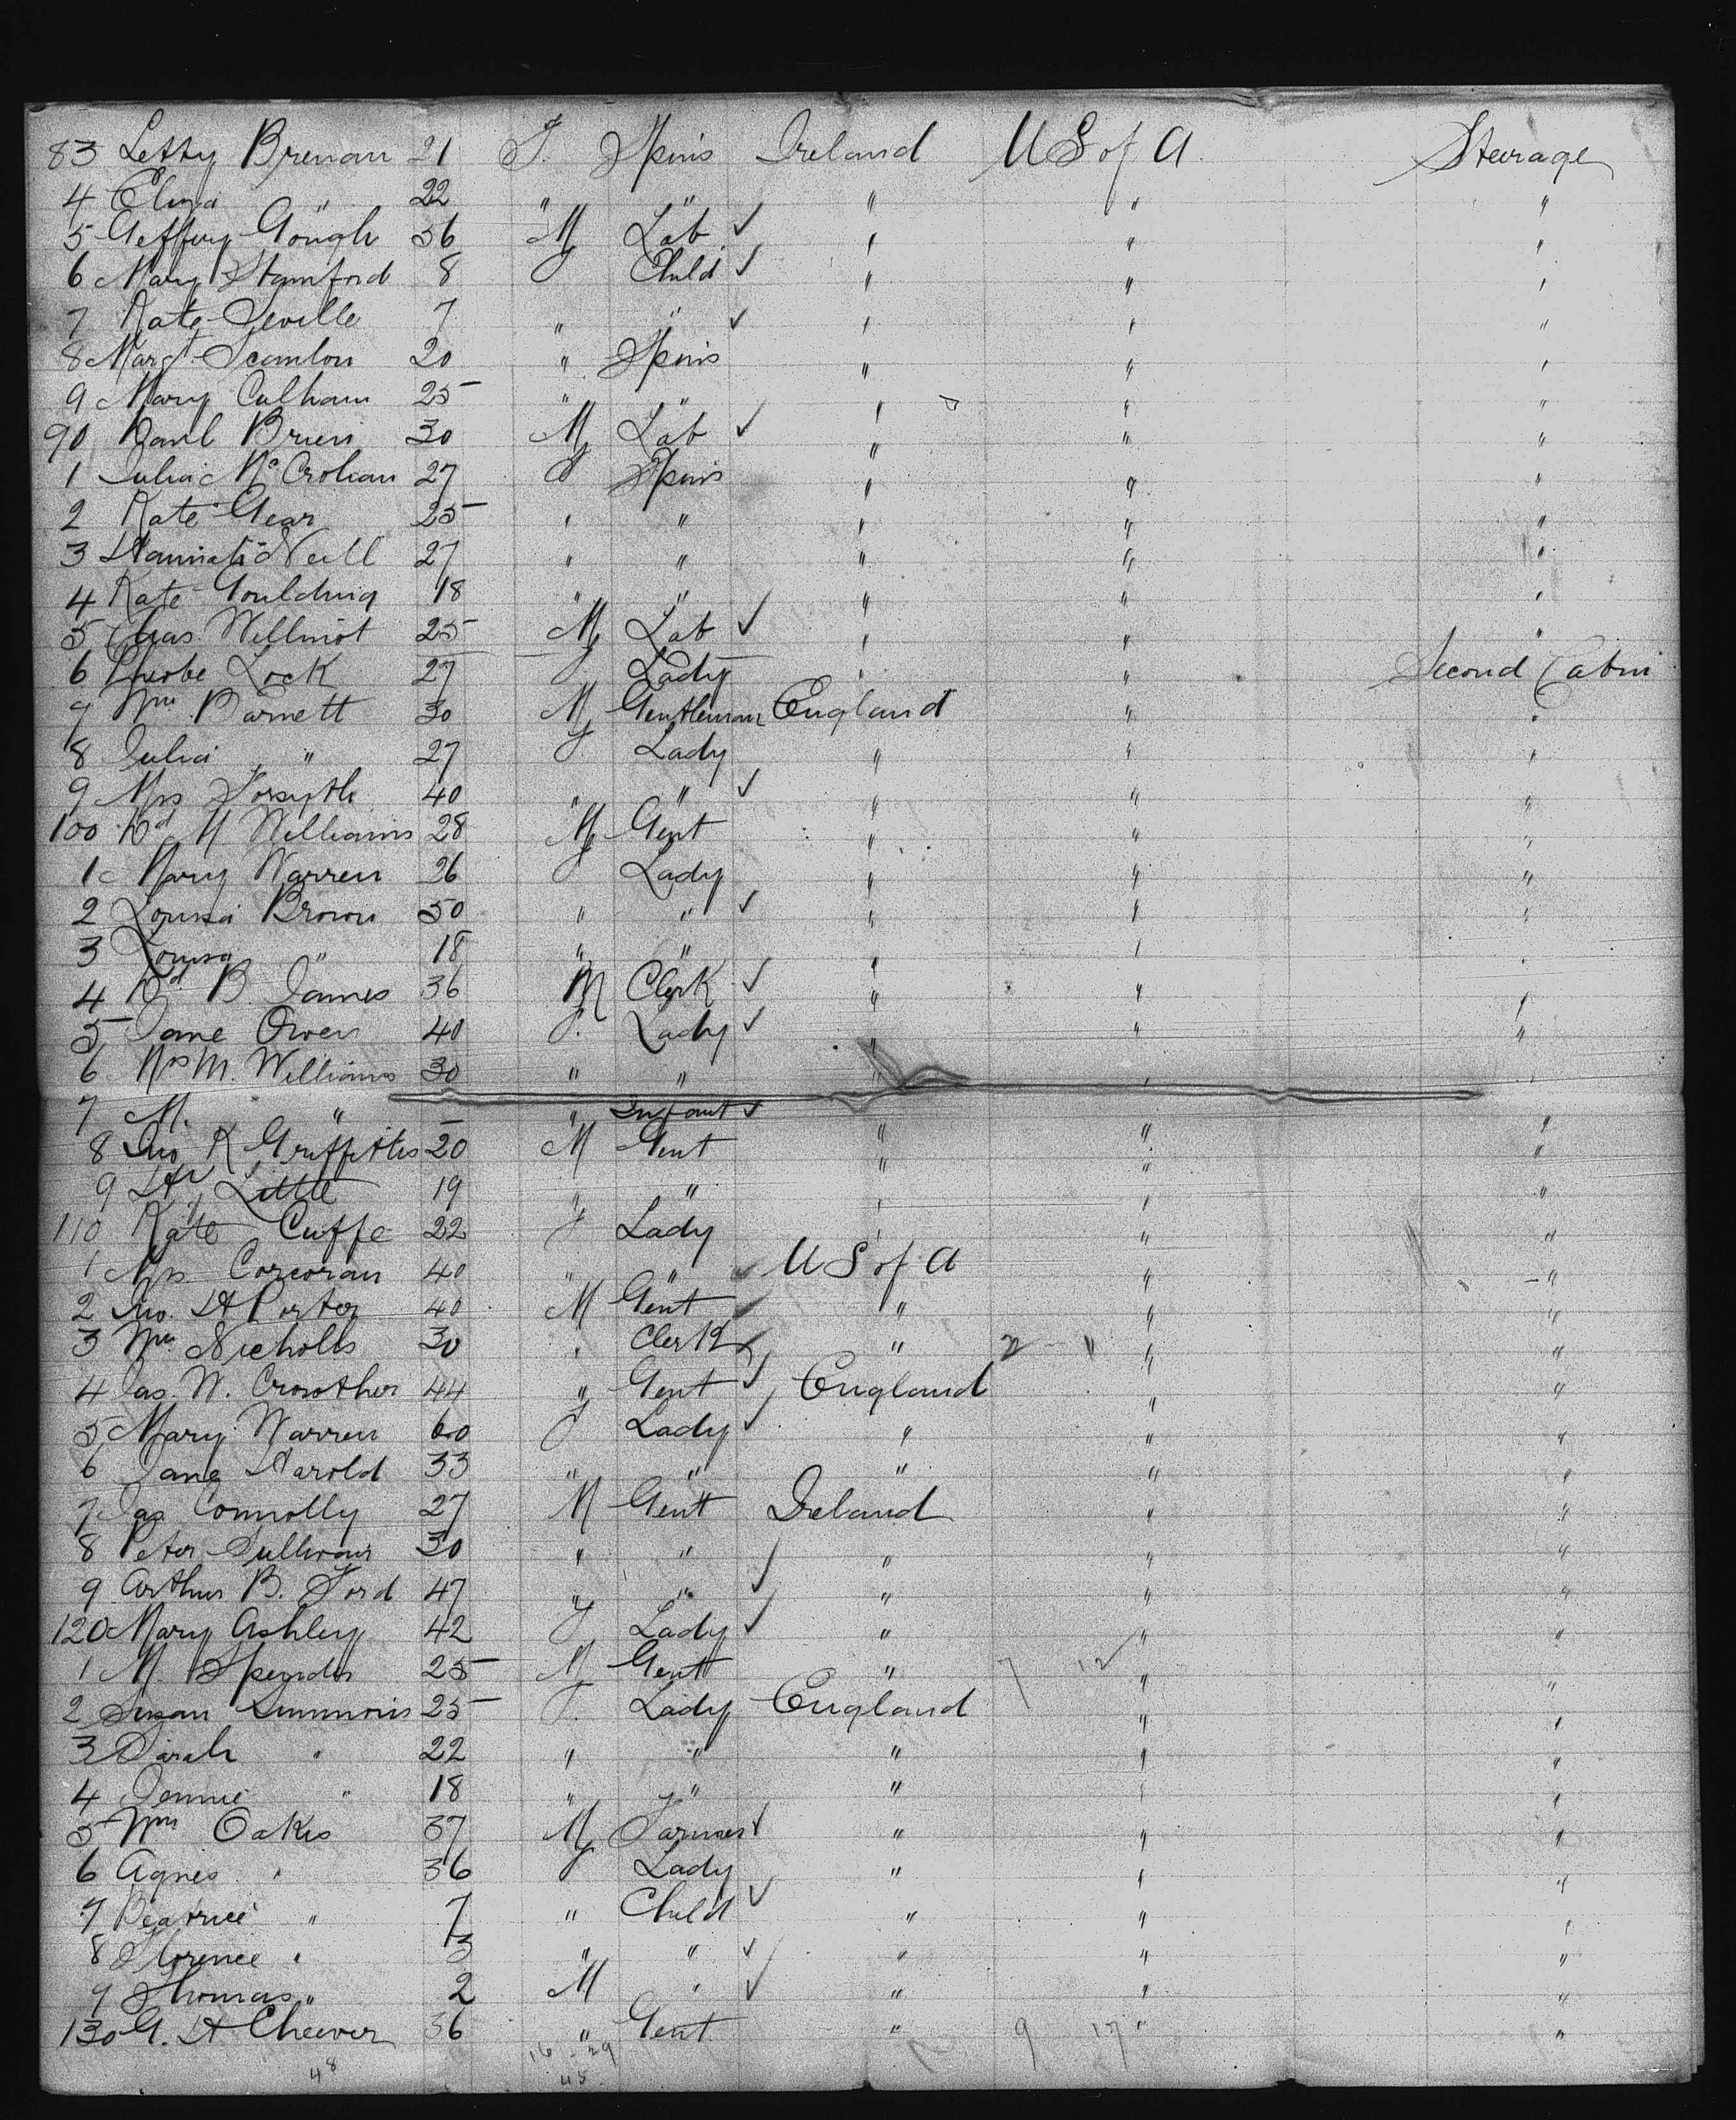 83 Letty Brenan 21 F. Spins Ireland U S of A. Steerage
4 Eliza " 22 " " " " "
5 Geffery Gough 56 M Lab ✓ " " "
6 Mary Stamford 8 F Child ✓ " " "
7 Kate Seville 7 " " ✓ " " "
8 Margt. Scanlon 20 " Spins " " "
9 Mary Culham 25 " " " " "
90 Danl Brien 30 M Lab ✓ " " "
1 Julia McCrohan 27 F Spins " " "
2 Kate Gear 25 " " " " "
3 Hannah O'Neill 27 " " " " "
4 Kate Goulding 18 " " " " "
5 Chas. Willmot 25 M Lab ✓ " " "
6 Phoebe Lock 27 F Lady " " Second Cabin
7 Wm Barnett 30 M Gentleman England " "
8 Julia " 27 F Lady " " "
9 Mrs Forsyth 40 " " ✓ " " "
100 M Williams 28 M Gent " " "
1 Mary Warren 26 F Lady " " "
2 Louisa Brown 50 " " ✓ " " "
3 Louisa " 18 " " " " "
4 B. James 36 M Clerk ✓ " " "
5 Jane Owen 40 F. Lady ✓ " " "
6 Mrs M. Williams 30 " " " " "
7 M. " – " Infant ✓ " " "
8 Jno R Griffiths 20 M Gent " " "
9 Hy Little 19 " " " " "
110 Kate Cuffe 22 F Lady " " "
1 Mrs. Corcoran 40 " " ✓ U S of A " "
2 Jno. H Porter 40 M Gent ✓ " " "
3 Wm Nicholls 30 " Clerk ✓ " 2 " " "
4 Jas. W. Crowther 44 " Gent ✓ England " "
5 Mary Warren 60 F Lady ✓ " " "
6 Jane Harold 33 " " " " "
7 Jas Connolly 27 M Gent Ireland " "
8 Peter Sullivan 30 " " ✓ " " "
9 Arthur B. Ford 47 " " " " "
120 Mary Ashley 42 F Lady ✓ " " "
1 M. 25 M Gent " 7 12 " "
2 Susan Simmons 25 F. Lady England " "
3 Sarah " 22 " " " " "
4 Jennie " 18 " " " " "
5 Wm Oakes 37 M Farmer ✓ " " "
6 Agnes " 36 F Lady " " "
7 Beatrice " 7 " Child ✓ " " "
8 Florence " 3 " " ✓ " " "
9 Thomas " 2 M " ✓ " " "
130 G. H Cheever 36 " Gent " 9 17 " "
48 16 - 29
45